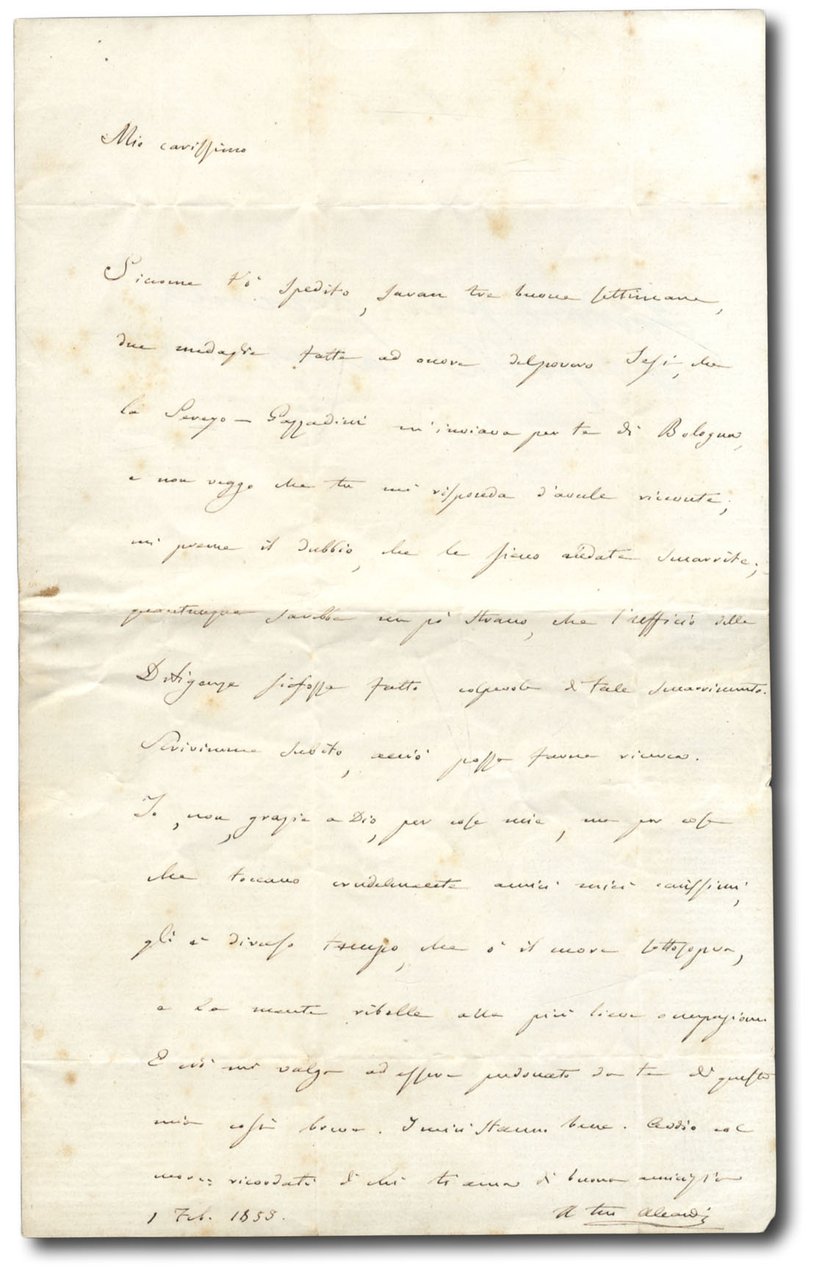 Mio carissimo
Siccome t'ò spedito, saran tre buone settimane,
due medaglie fatte ad onore del povero Sesi, che
la Serego-Gozzadini m'inviava per te di Bologna,
e non veggo che tu mi risponda d'averle ricevute;
mi preme il dubbio, che le sieno andate smarrite;
quantunque sarebbe un pò strano, che l'ufficio delle
Diligenze si fosse fatto colpevole di tale smarrimento.
Scrivimme subito, acciò possa farne ricerca.
Io, non, grazie a Dio, per cose mie, ma per cose
che toccano crudelmente amici miei carissimi,
gli è diverso tempo, che ò il core sottosopra,
e la mente ribelle alla più lieve occupazione.
E ciò mi valga ad essere perdonato da te di questa
mia così breve. I miei stanno bene. Addio col
core: ricordati di chi ti ama di buona amicizia
1 Feb. 1855. Il tuo Aleardi